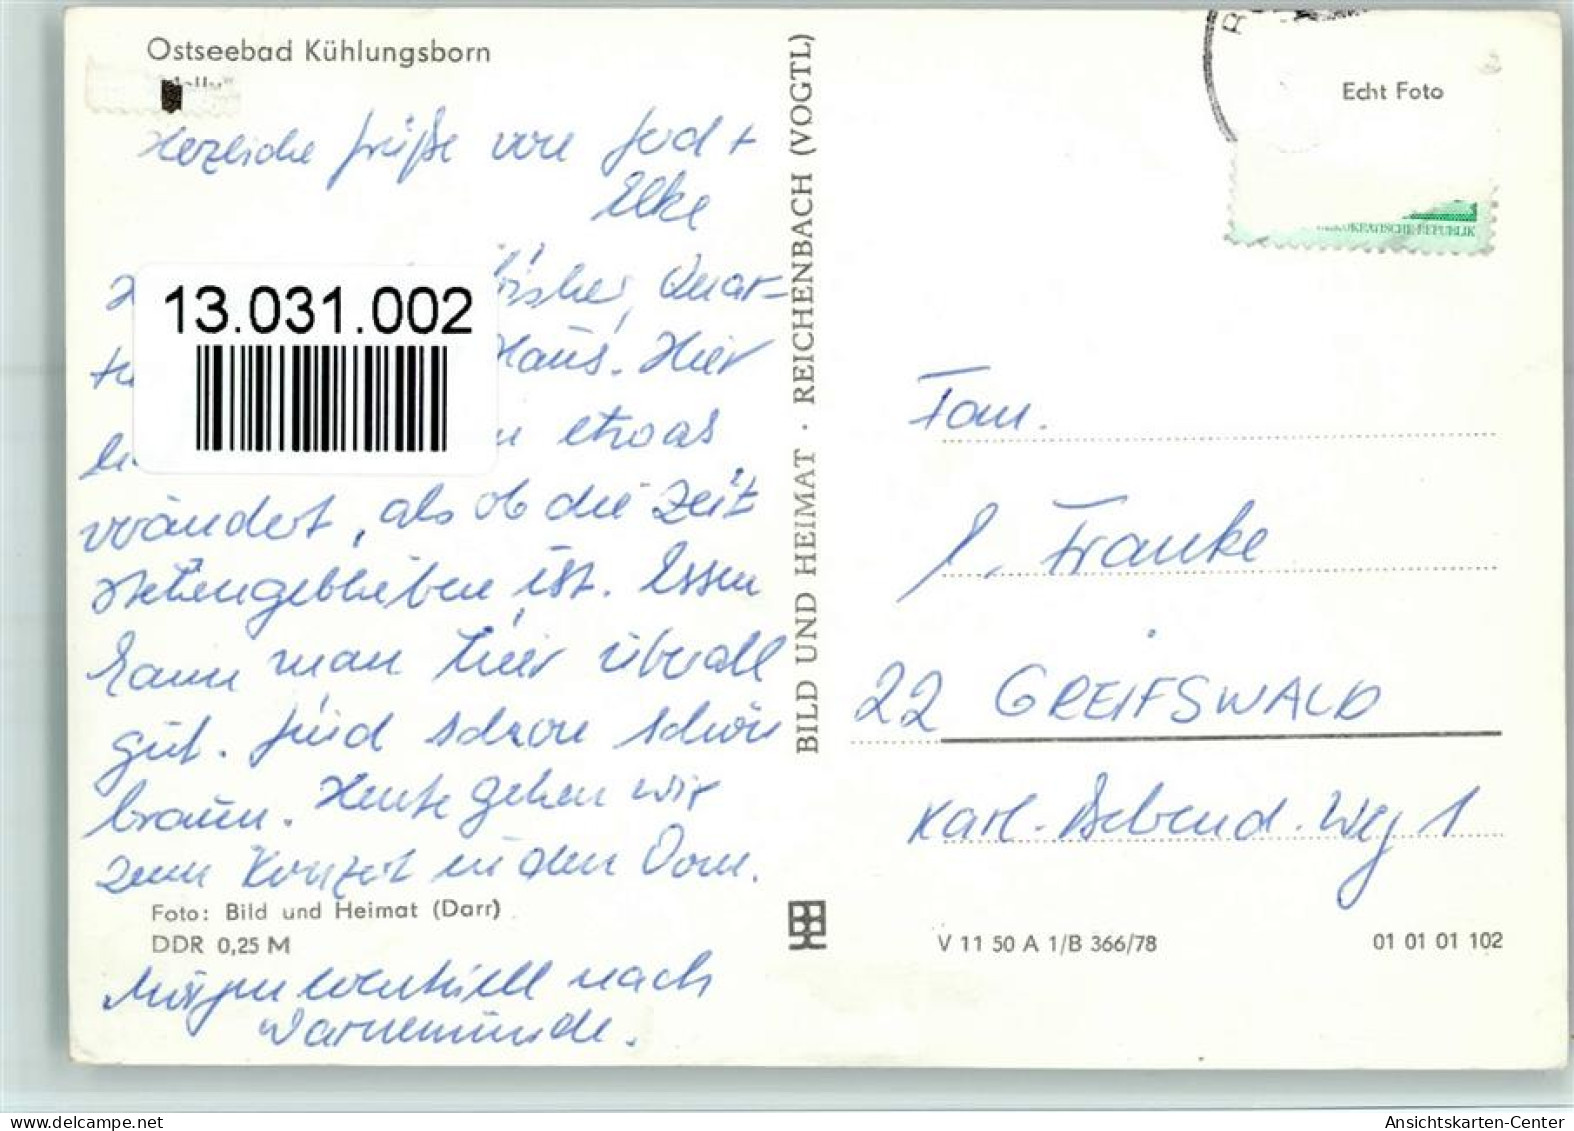 Ostseebad Kühlungsborn
Herzliche Grüße von Gerd +
Elke
13.031.002
Quar-
Haus. Hier
etwas
verändert, als ob die Zeit
stehengeblieben ist. Essen
kann man hier überall
gut. Sind schon schön
braun. Heute gehen wir
zum Konzert in den Dom.
Foto: Bild und Heimat (Darr)
DDR 0,25 M
Morgen eventuell nach
Warnemünde.
BILD UND HEIMAT · REICHENBACH (VOGTL)
Echt Foto
REPUBLIK
Fam.
Franke
22 GREIFSWALD
Weg 1
V 11 50 A 1/B 366/78
01 01 01 102
Ansichtskarten-Center